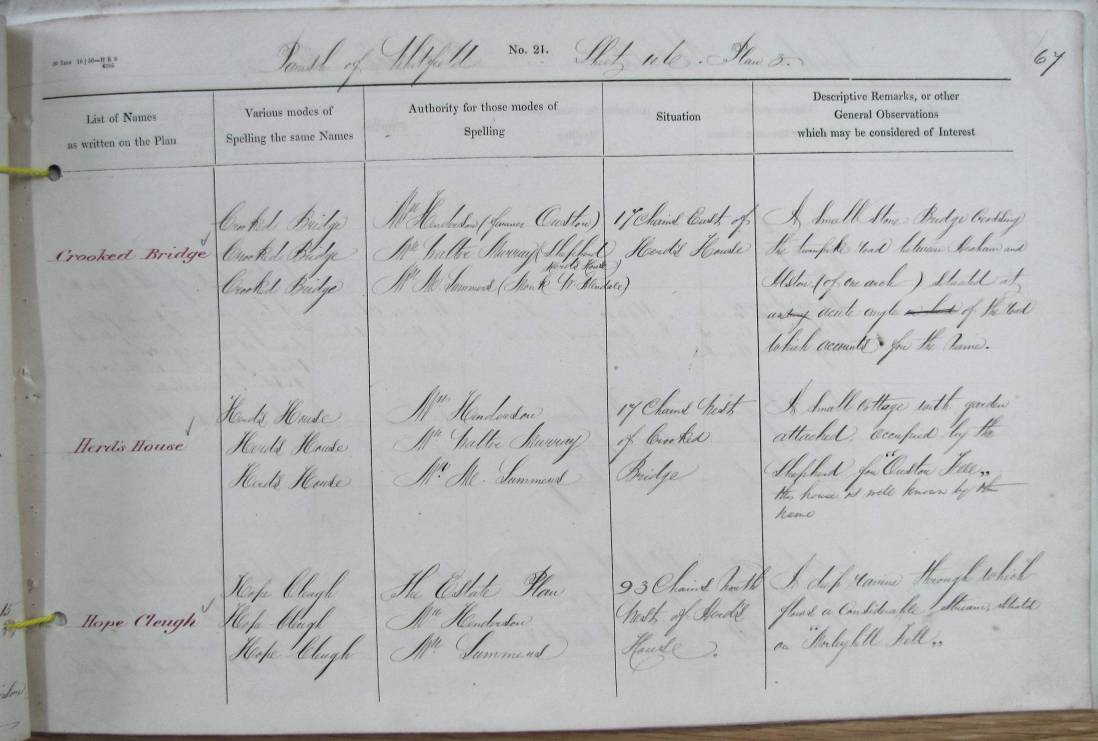 Parish of Whitfield No. 21. Sheet 116. Plan 3. 67
List of Names
as written on the Plan
Various modes of
Spelling the same Names
Authority for those modes of
Spelling
Situation
Descriptive Remarks, or other
General Observations
which may be considered of Interest
Crooked Bridge
Crooked Bridge
Crooked Bridge
Crooked Bridge
Mr. Henderson (Farmer Ouston)
Mr. Walter Murray (Shepherd
Herd's House)
Mr. M. Summers (Monk W. Allendale)
17 Chains East of
Herd's House
A small stone Bridge crossing
the turnpike road between Hexham and
Alston (of one arch) situated at
acute angle of the road
which accounts for the name.
Herd's House
Herd's House
Herd's House
Herd's House
Mr. Henderson
Mr. Walter Murray
Mr. M. Summers
17 Chains West
of Crooked
Bridge
A small cottage with garden
attached, occupied by the
shepherd for "Ouston Fell"
this house is well known by the
name
Hope Cleugh
Hope Cleugh
Hope Cleugh
Hope Cleugh
The Estate Plan
Mr. Henderson
Mr. Summers
93 Chains North
West of Herd's
House.
A deep ravine through which
flows a considerable stream, situate
on Fell"